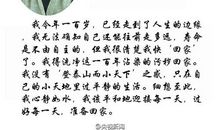 我今年一百岁，已经走到了人生的边缘，
我无法确知自己还能往前走多远，寿命
是不由自主的，但我很清楚我快“回家”
了。我得洗净这一百年沾染的污秽回家。
我没有“登泰山而小天下”之感，只在自
己的小天地里过平静的生活。细想至此，
我心静如水，我该平和地迎接每一天，过
好每一天，准备回家。
@央视新闻